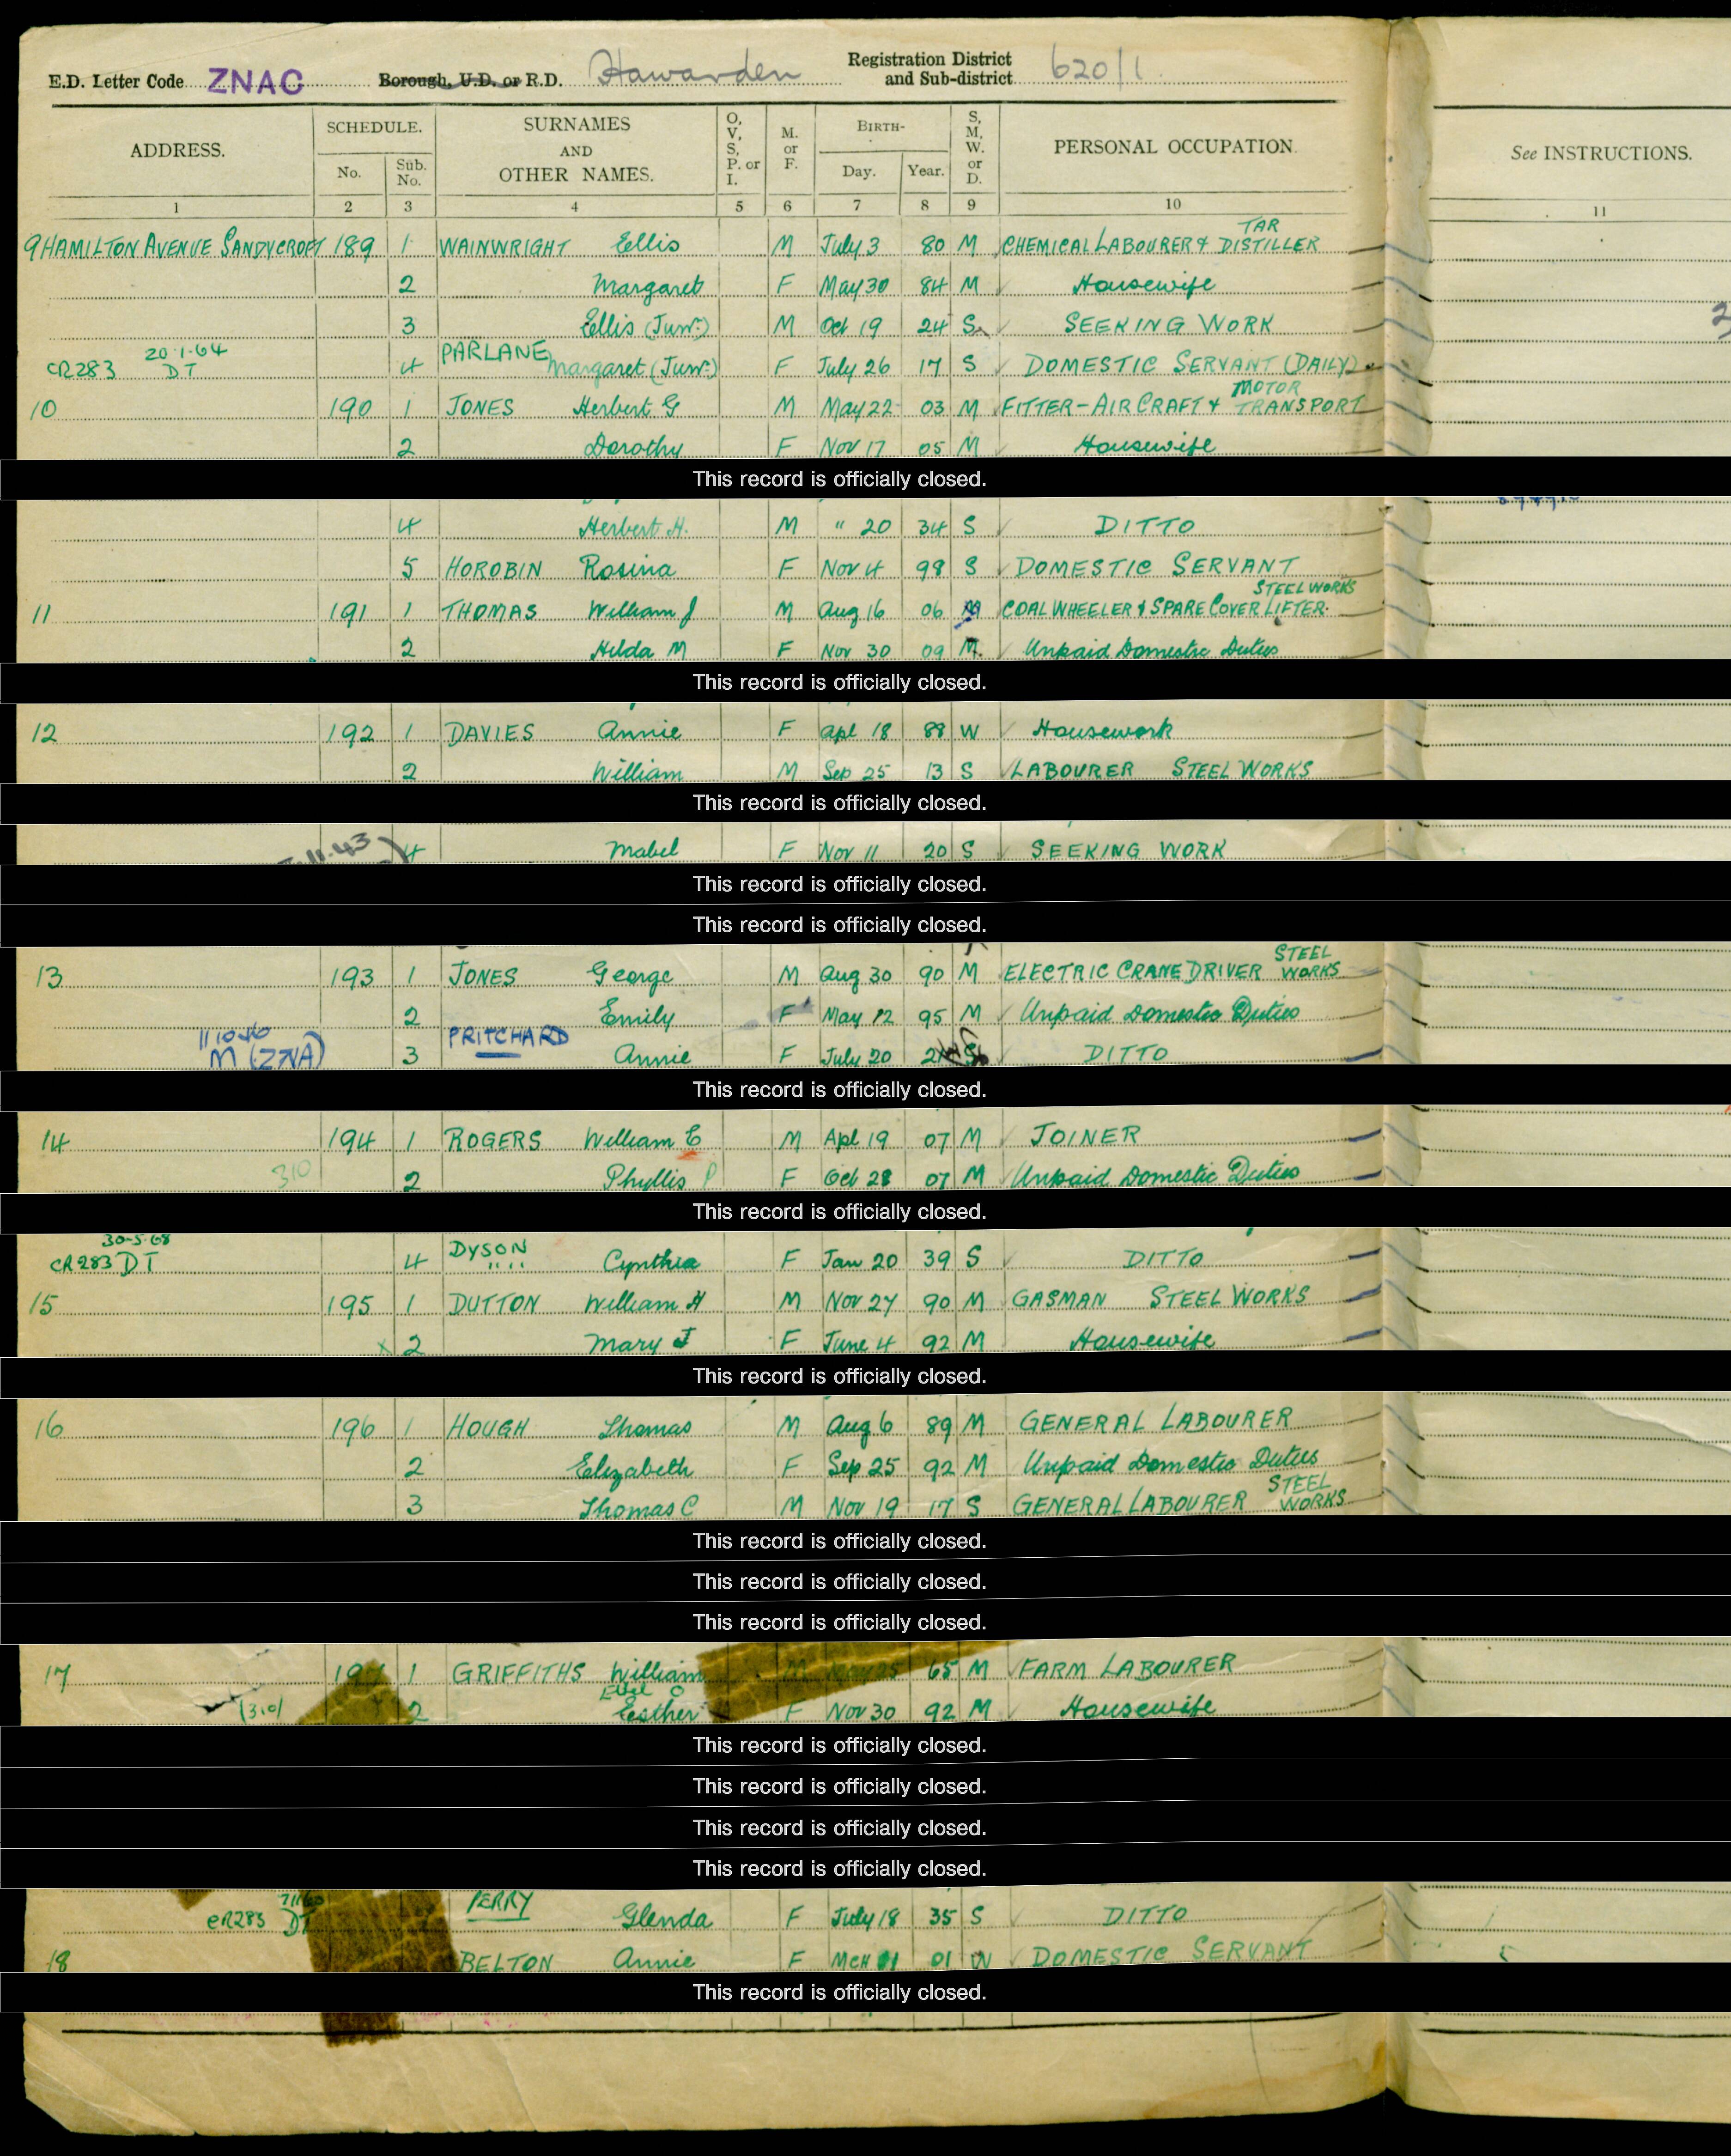 E.D. Letter Code ZNAC Borough, U.D. or R.D. Hawarden Registration District and Sub-district 620/1
ADDRESS. SCHEDULE. No. Sub. No. SURNAMES AND OTHER NAMES. O, V, S, P. or I. M. or F. BIRTH- Day. Year. S, M, W. or D. PERSONAL OCCUPATION. See INSTRUCTIONS.
1 2 3 4 5 6 7 8 9 10 11
TAR
9 HAMILTON AVENUE SANDYCROFT 189 1 WAINWRIGHT Ellis M July 3 80 M CHEMICAL LABOURER & DISTILLER
2 Margaret F May 30 84 M Housewife
3 Ellis (Junr.) M Oct 19 24 S SEEKING WORK
20.1.64 PARLANE
CR283 DT 4 Margaret (Junr.) F July 26 17 S DOMESTIC SERVANT (DAILY)
MOTOR
10 190 1 JONES Herbert G M May 22 03 M FITTER - AIRCRAFT & TRANSPORT
2 Dorothy F Nov 17 05 M Housewife
This record is officially closed.
4 Herbert H. M " 20 34 S DITTO
5 HOROBIN Rosina F Nov 4 98 S DOMESTIC SERVANT
STEEL WORKS
11 191 1 THOMAS William J M Aug 16 06 M COAL WHEELER & SPARE COVER LIFTER.
2 Hilda M F Nov 30 09 M. Unpaid Domestic Duties
This record is officially closed.
12 192 1 DAVIES Annie F Apl 18 88 W Housework
2 William M Sep 25 13 S LABOURER STEEL WORKS
This record is officially closed.
11.43 4 Mabel F Nov 11 20 S SEEKING WORK
This record is officially closed.
This record is officially closed.
STEEL
13 193 1 JONES George M Aug 30 90 M ELECTRIC CRANE DRIVER WORKS
2 Emily F May 12 95 M Unpaid Domestic Duties
PRITCHARD
M (ZNA) 3 Annie F July 20 S DITTO
This record is officially closed.
14 194 1 ROGERS William E M Apl 19 07 M JOINER
310 2 Phyllis P F Oct 28 07 M Unpaid Domestic Duties
This record is officially closed.
30-5-68 DYSON
CR283 DT 4 " " Cynthia F Jan 20 39 S DITTO
15 195 1 DUTTON William H M Nov 27 90 M GASMAN STEEL WORKS
x 2 Mary J F June 4 92 M Housewife
This record is officially closed.
16 196 1 HOUGH Thomas M Aug 6 89 M GENERAL LABOURER
2 Elizabeth F Sep 25 92 M Unpaid Domestic Duties
STEEL
3 Thomas C M Nov 19 17 S GENERAL LABOURER WORKS
This record is officially closed.
This record is officially closed.
This record is officially closed.
17 1 GRIFFITHS William M 65 M FARM LABOURER
310 2 Esther F Nov 30 92 M Housewife
This record is officially closed.
This record is officially closed.
This record is officially closed.
This record is officially closed.
PERRY
CR283 DT Glenda F July 18 35 S DITTO
18 BELTON Annie F Mch 01 W DOMESTIC SERVANT
This record is officially closed.